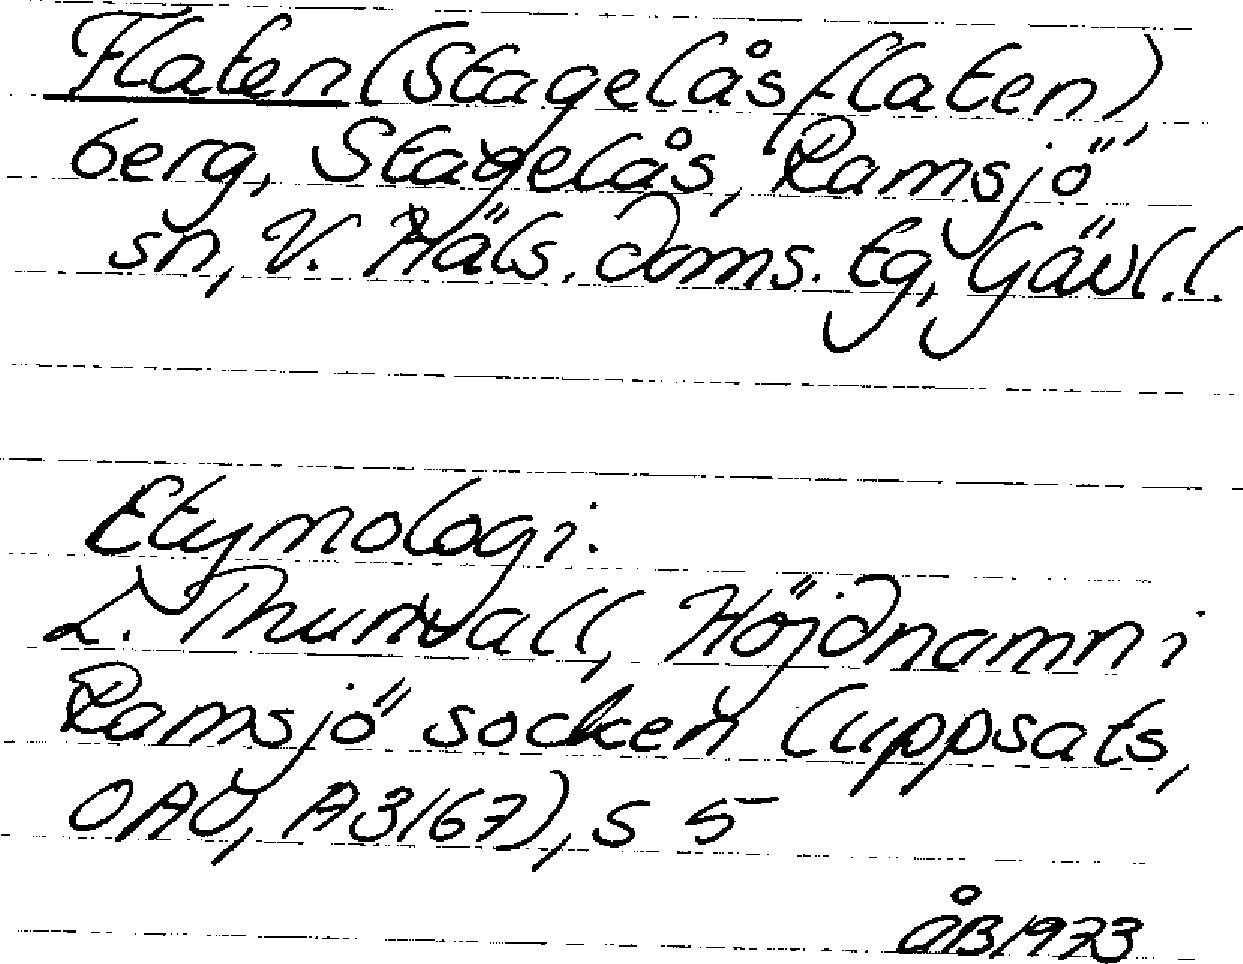 Flaten (Stagelåsflaten),
berg, Stagelås, Ramsjö
sn, V. Häls. doms. tg, Gävl.l.
Etymologi:
L. Thunvall, Höjdnamn i
Ramsjö socken (uppsats,
OAU, A3167), s 5
ÅB 1973